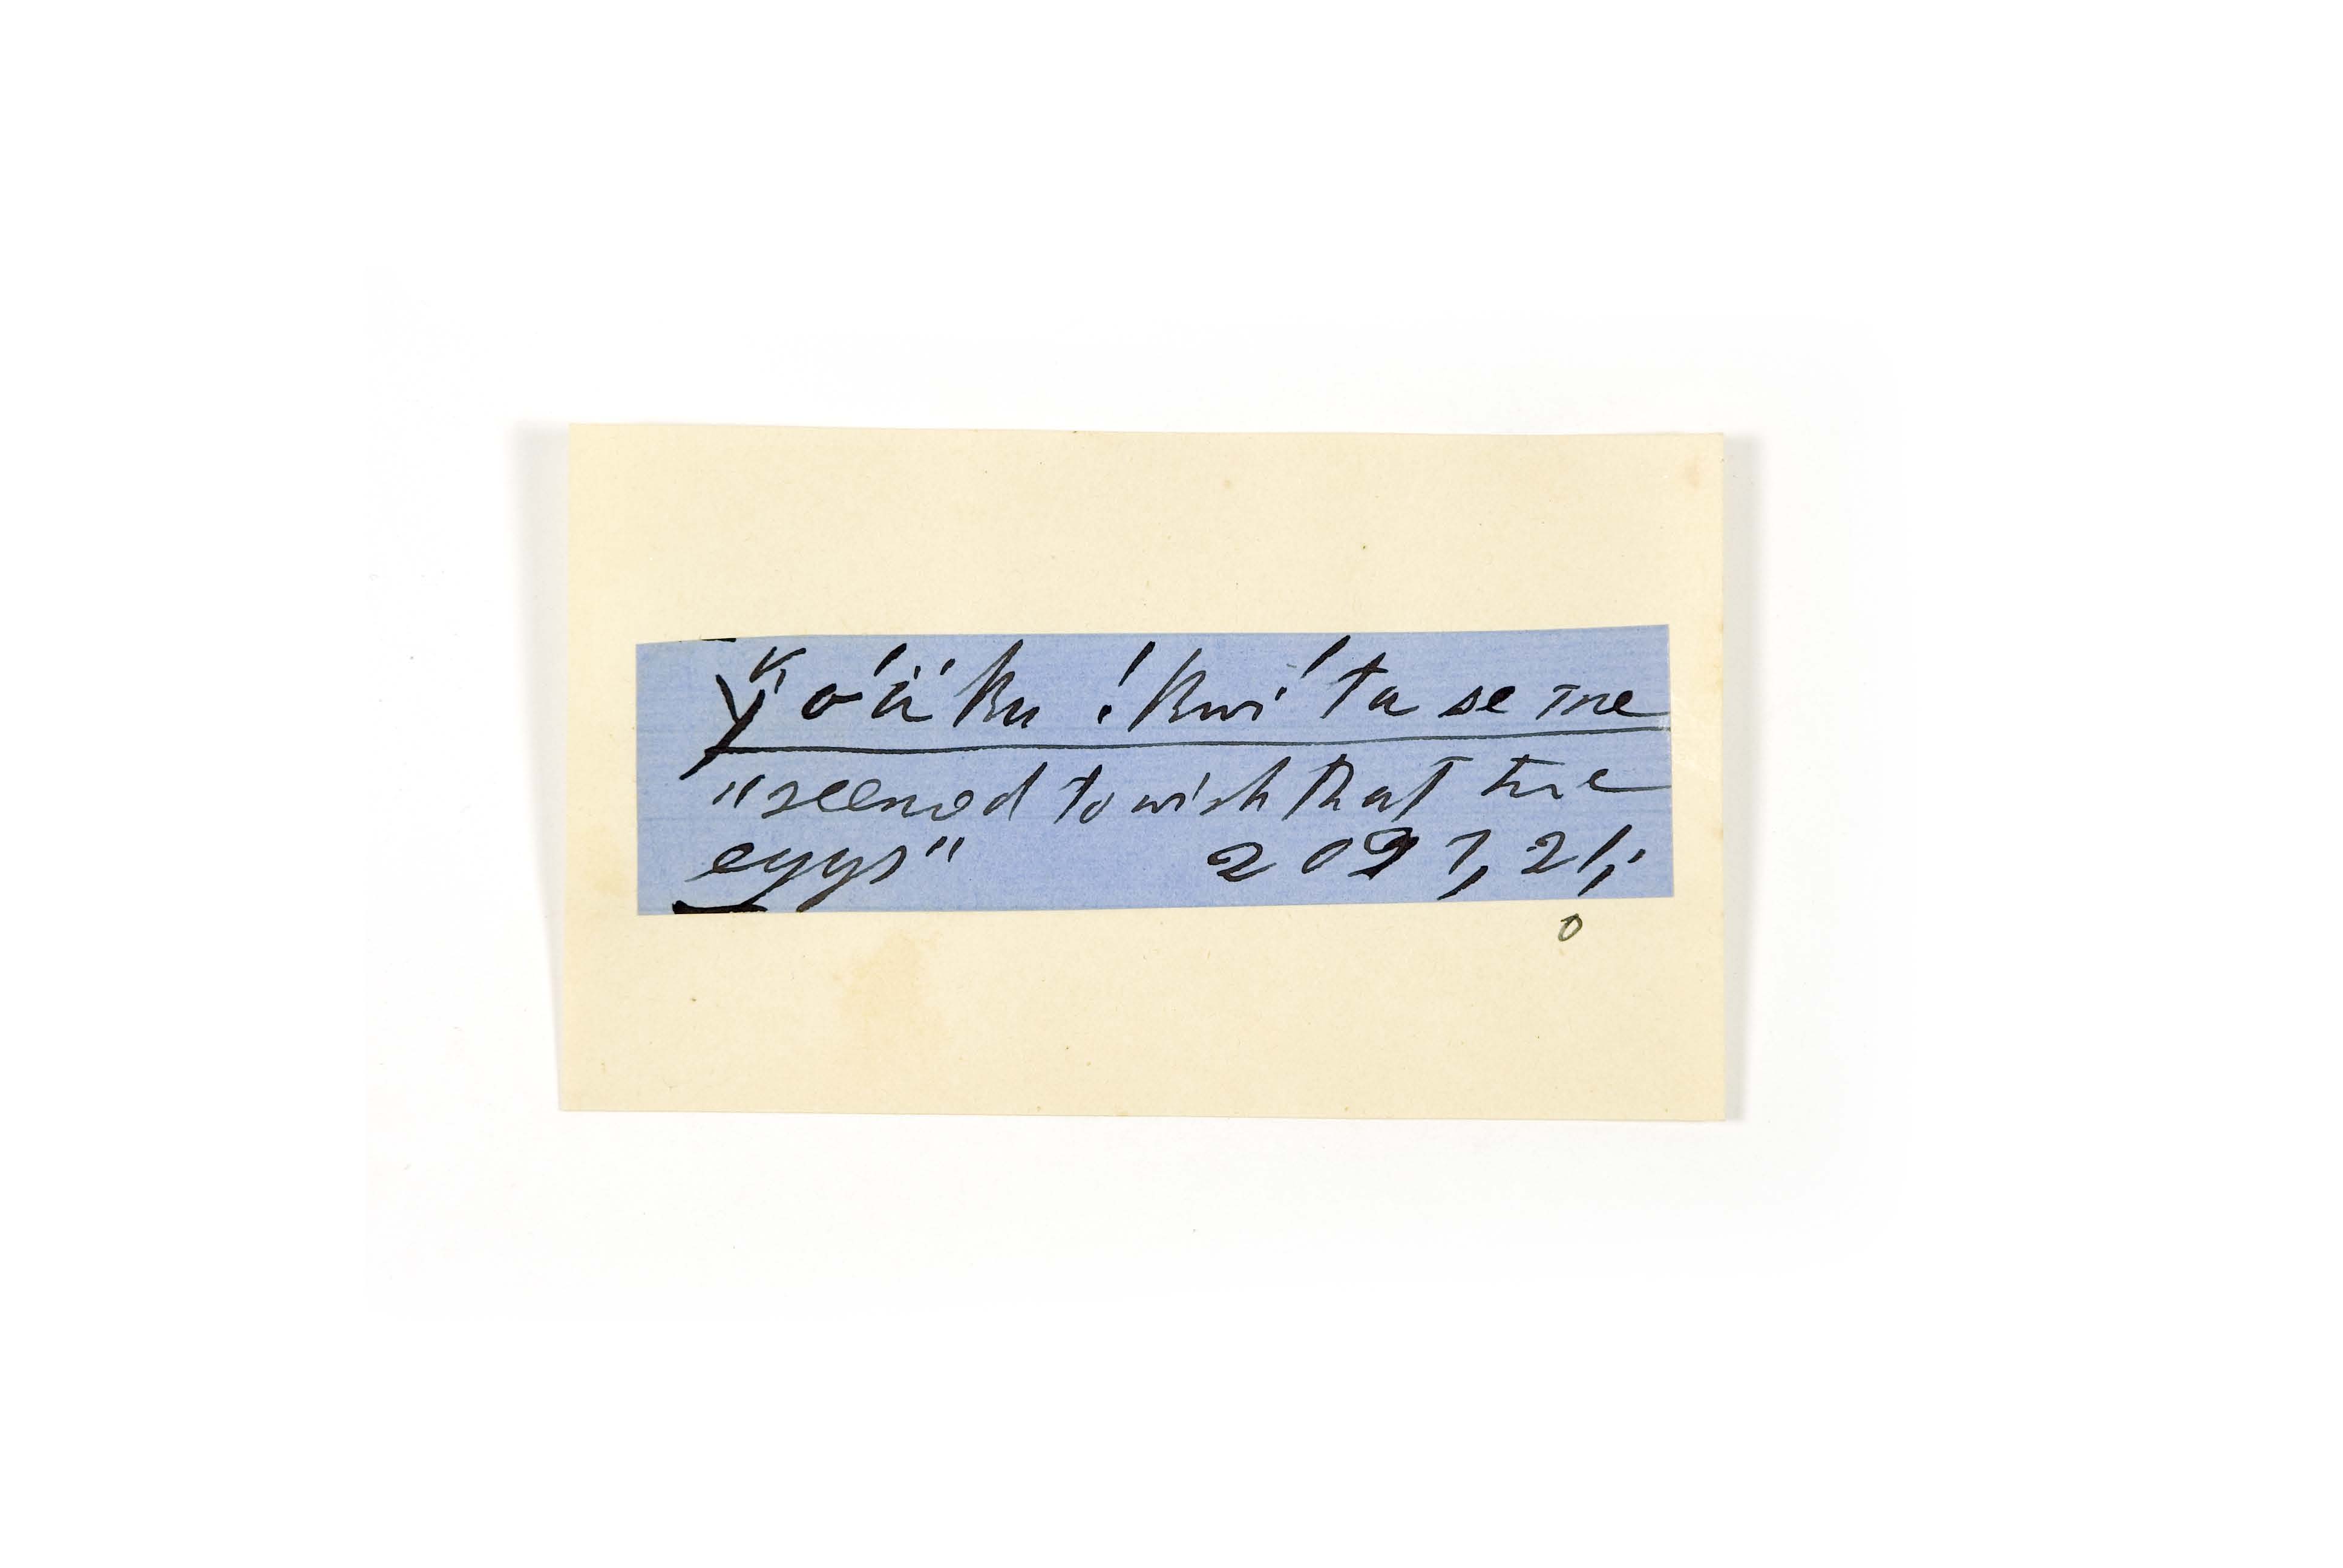 ÿ o' ä' ku !kwi' ta se tne
"seemed to wish that the
eggs" 2097, 21;
0